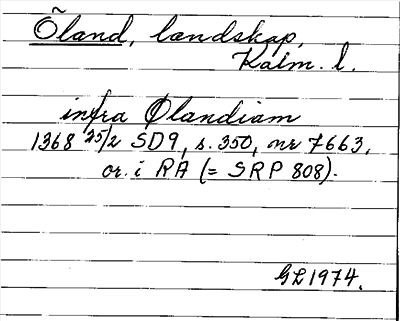 Õland, landskap,
Kalm. l.
infra Ølandiam
1368 25/2 SD9, s. 350, nr 7663,
or. i RA (= SRP 808).
GL1974.